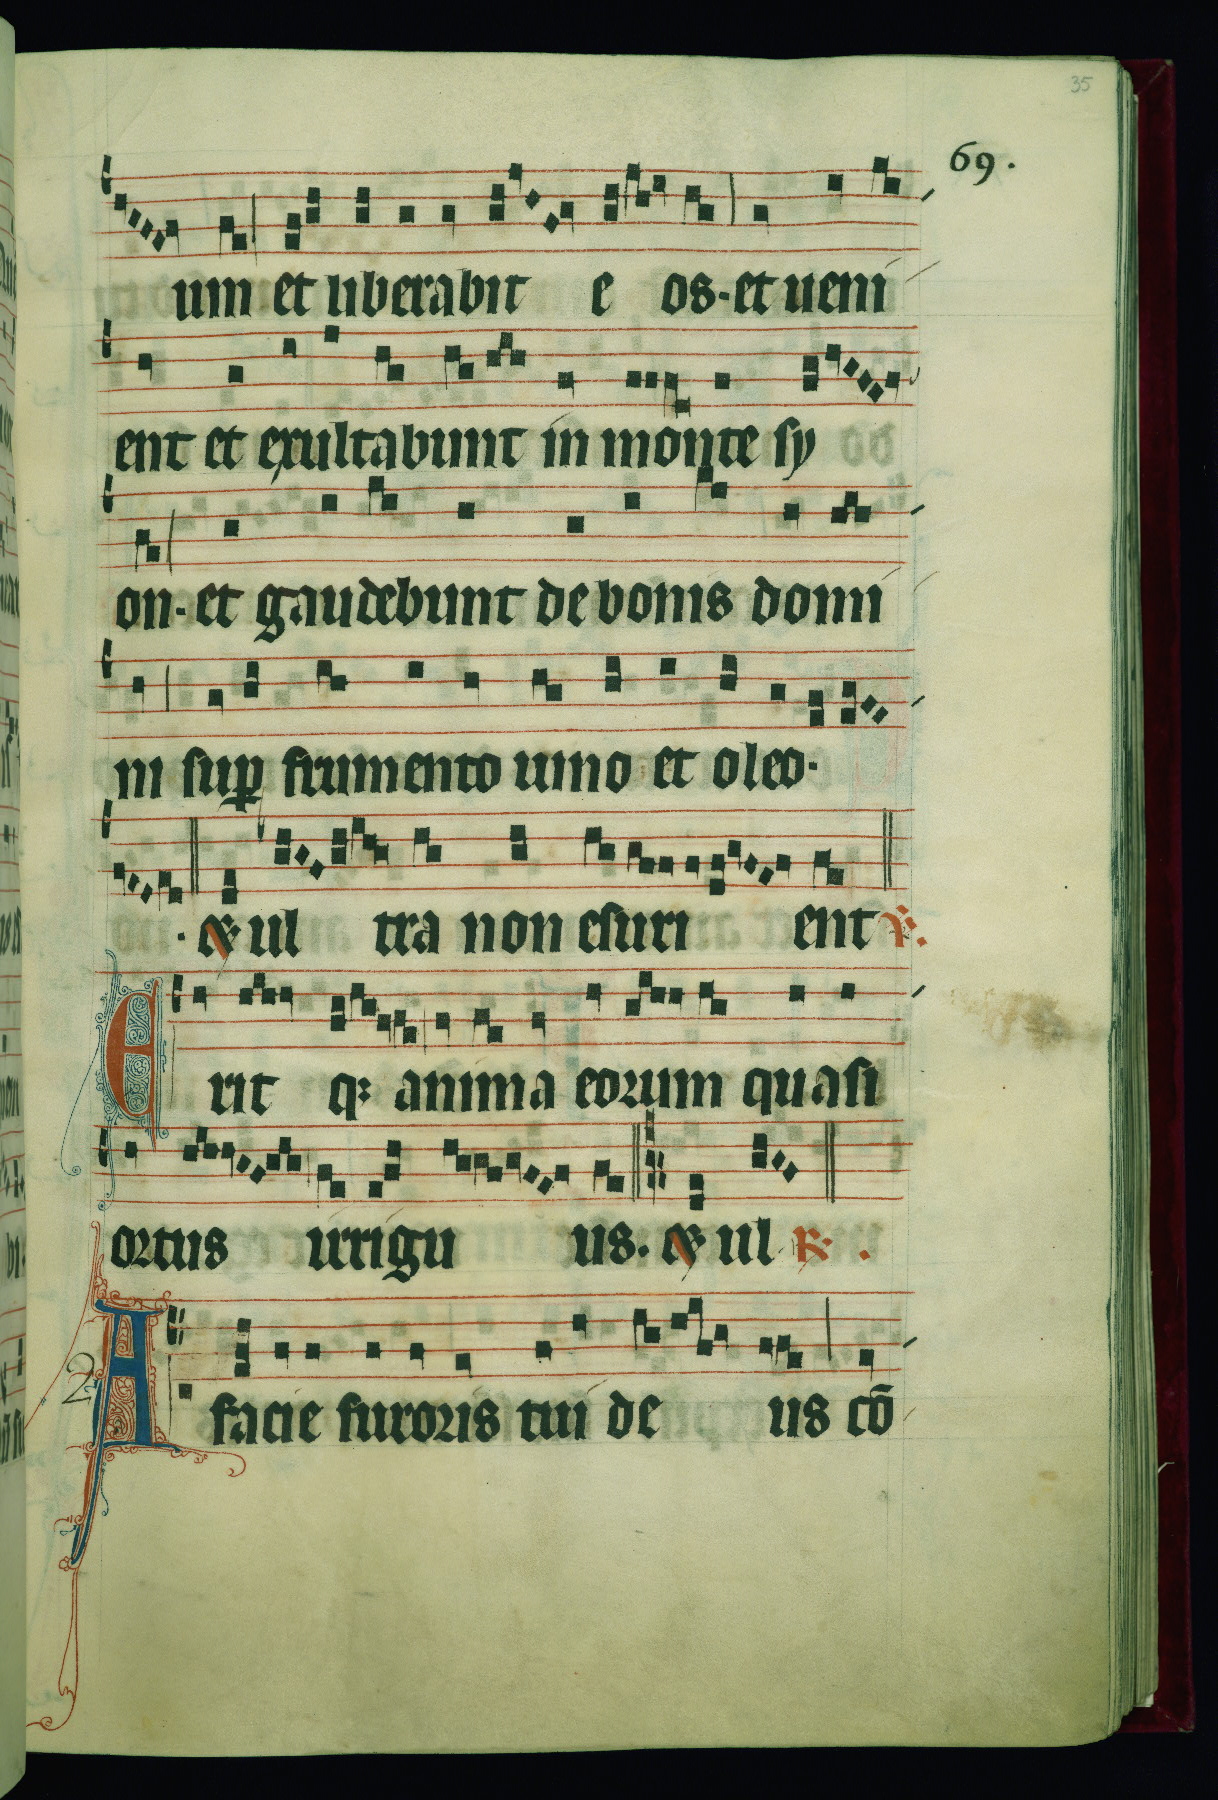 35
69.
um et liberabit e os. et ueni
ent et exultabunt in monte sy
on. et gaudebunt de bonis domi
ni sup frumento uino et oleo.
. et ul tra non esuri ent ℟.
Erit qꝫ anima eorum quasi
ortus irrigu us. et ul ℟.
2
A facie furoris tui de us cō